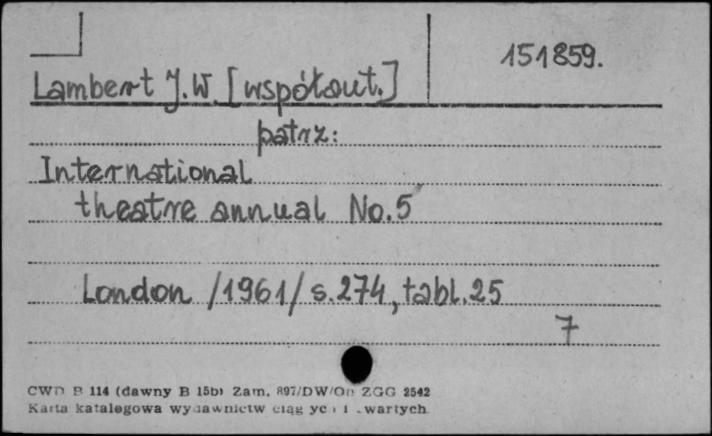 151859.
Lambert J.W. [współaut.]
patrz:
International
theatre annual No.5
London /1961/ s.274, tabl.25
7
CWD B 114 (dawny B 15b) Zam. 897/DW/On ZGG 2542
Karta katalogowa wydawnictw